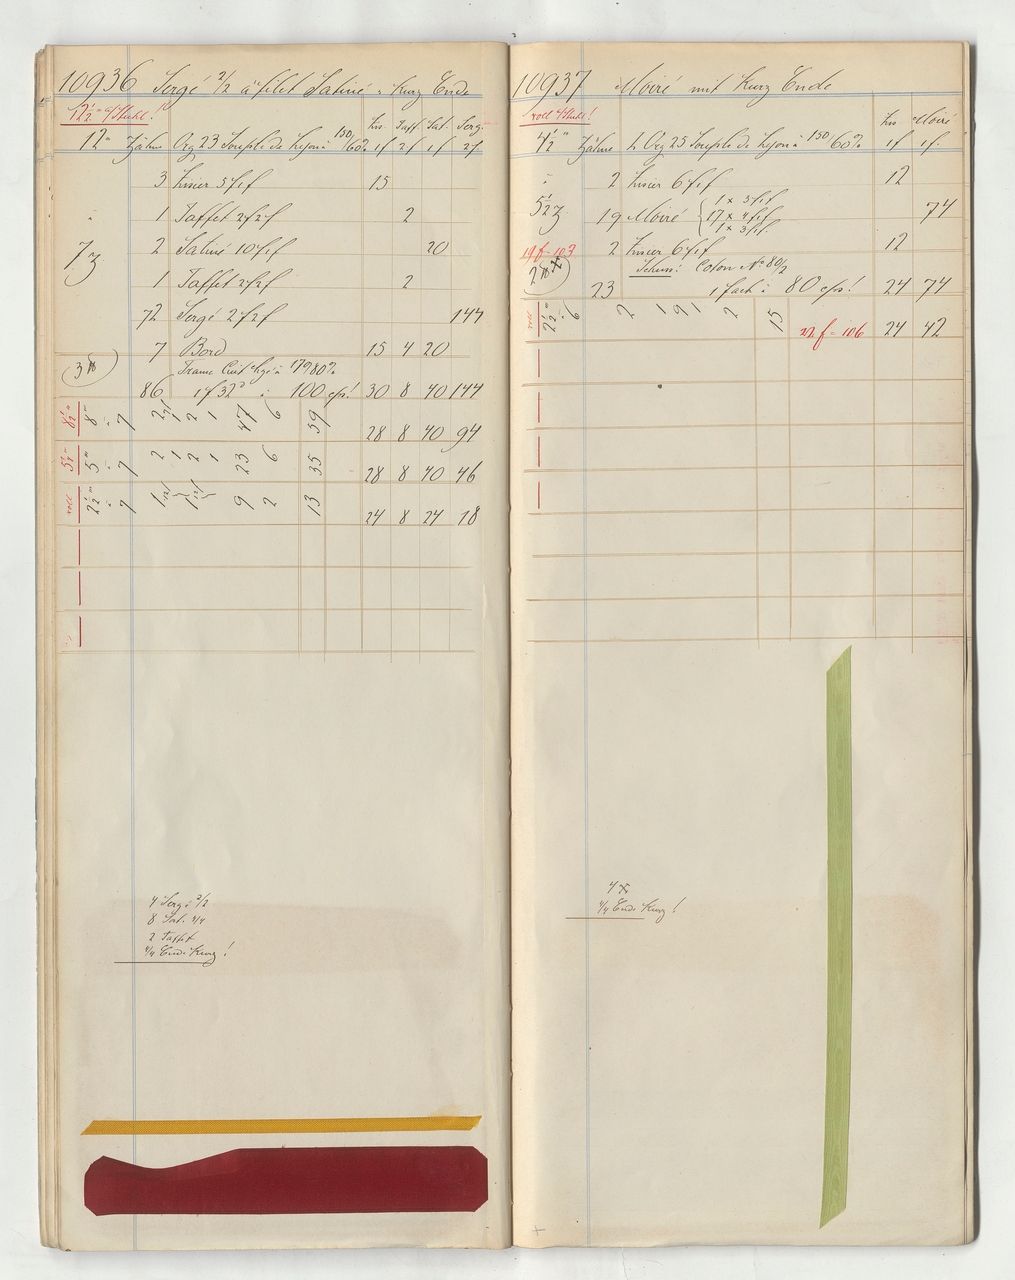 10936 Sergé 2/2 à filet Satiné Kurz Ende
12½" Stuhl!
Lis. Taff. Sat. Serg.
12" Zähne Org 23 Souple de Lyon à 150/60% 1f 2f 1f 2f
3 Lisier 5f1f 15
1 Taffet 2f2f 2
7 Z 2 Satiné 10f1f 20
1 Taffet 2f2f 2
72 Sergé 2f2f 144
7 Bord 15 4 20
3
Trame Cuit 179 80%
86 1f 32 à 100 cps! 30 8 40 144
8½" 8" 7 2 2 1 47 6 59 28 8 40 94
5½" 5" 7 2 1 2 1 23 6 35 28 8 40 46
roll 2½" 7 9 2 13 24 8 24 18
4 Sergé 2/2
8 Sat. 4/4
2 Taffet
4/4 Ende Kurz!
10937 Moiré mit Kurz Ende
roll Stuhl!
Lis Moiré
4½" Zähne L Org 25 Souple de Lyon à 150/60% 1f 1f
2 Lisier 6f1f 12
5½ Z 19 Moiré 1 x 3f1f
17 x 4f1f 74
1 x 3f1f
19f-103 2 Lisier 6f1f 12
2 Schuss: Coton No 80/2
23 1fach à 80 cps! 24 74
roll 2½" 6 2 19 2 15 22f-106 24 42
4
4/4 Ende Kurz!